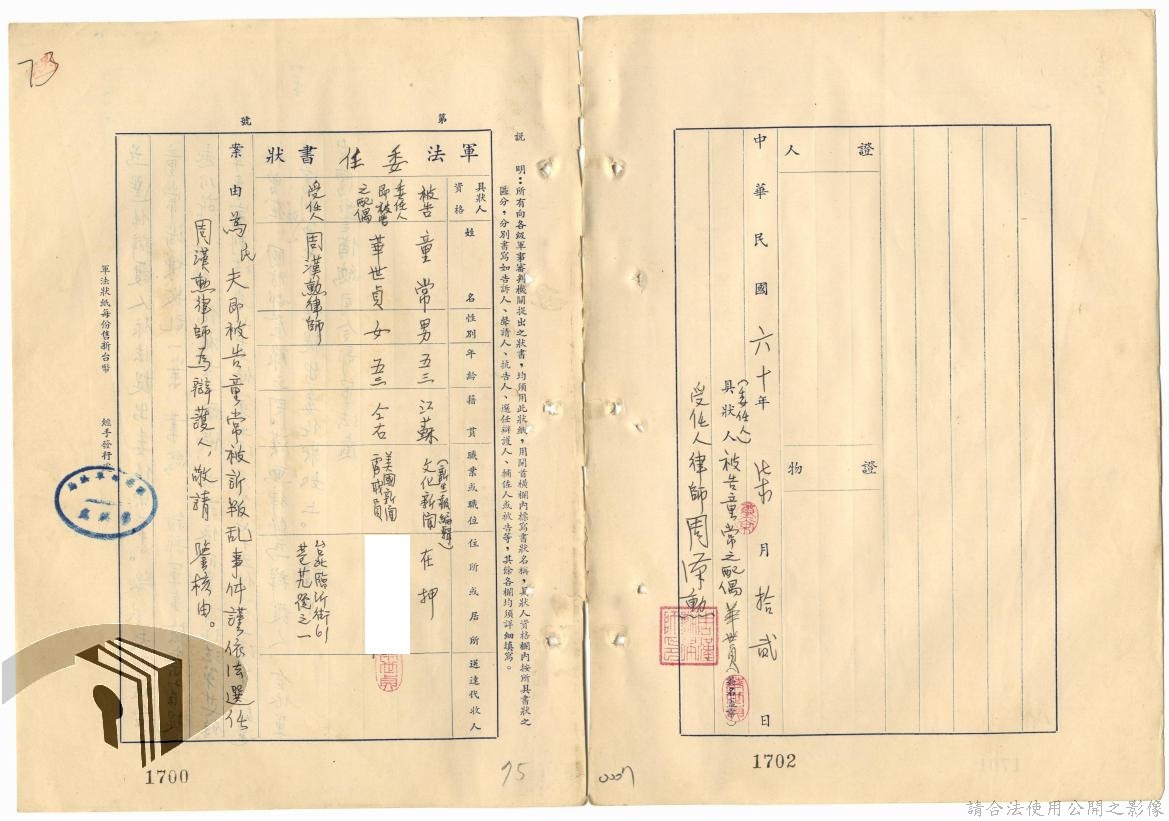 證
人
證
物
中華民國六十年柒月拾貳日
(委任人)
具狀人 被告童常之配偶 華世貞
受任人律師周漢勳
1702
0007
說明：所有向各級軍事審判機關提出之狀書，均須用此狀紙，用開首橫欄內標寫書狀名稱，具狀人資格欄內按所具書狀之
區分，分別書寫如告訴人、聲請人、抗告人、選任辯護人、輔佐人或被告等，其餘各欄均須詳細填寫。
第 號
軍法委任書狀
具狀人資格 姓名 性別 年齡 籍貫 職業或職位 住所或居所 送達代收人
被告 童常 男 五三 江蘇 文化新聞 (新生報編輯) 在押
委任人即被告之配偶 華世貞 女 五三 仝右 美國新聞處職員
台北臨沂街61
巷
之一
受任人 周漢勳律師
案由 為民夫即被告童常被訴叛乱事件謹依法選任
周漢勳律師為辯護人，敬請 鑒核由。
軍法狀紙每份售新台幣
經手發行
73
75
1700
請合法使用公開之影像